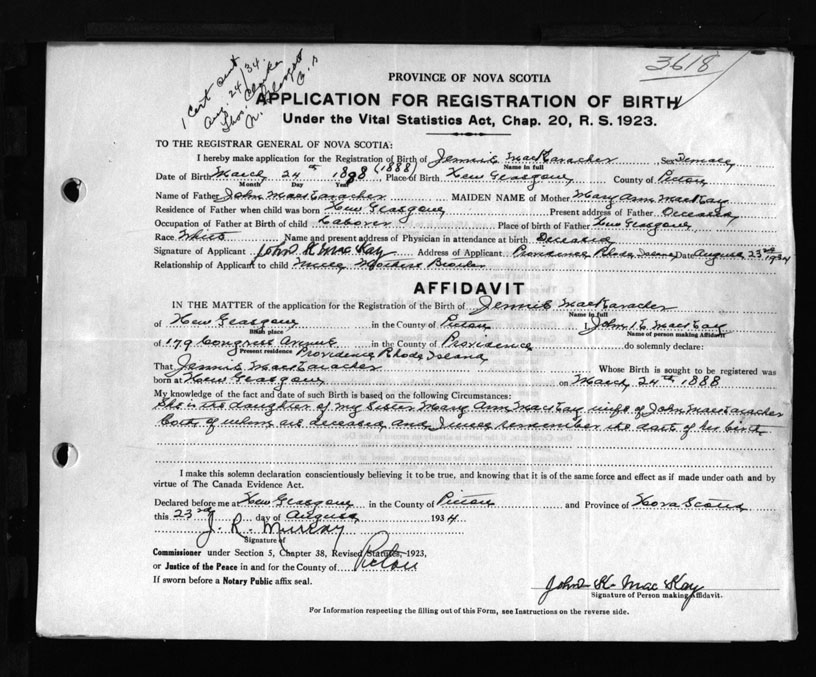 3618
1 Cert sent
Aug. 24/34.
Thos. Clarke
N. Glasgow
PROVINCE OF NOVA SCOTIA
APPLICATION FOR REGISTRATION OF BIRTH
Under the Vital Statistics Act, Chap. 20, R. S. 1923.
TO THE REGISTRAR GENERAL OF NOVA SCOTIA:
I hereby make application for the Registration of Birth of Jennie MacKaracher Sex Female
Name in full
Date of Birth March 24th 1888 (1888) Place of Birth New Glasgow County of Pictou
Month Day Year
Name of Father John MacKaracher MAIDEN NAME of Mother Mary Ann MacKay
Residence of Father when child was born New Glasgow Present address of Father Deceased
Occupation of Father at Birth of child Laborer Place of birth of Father New Glasgow
Race White Name and present address of Physician in attendance at birth Deceased
Signature of Applicant John K MacKay Address of Applicant Providence Rhode Island Date August 23rd 1934
Relationship of Applicant to child Mothers Brother
AFFIDAVIT
IN THE MATTER of the application for the Registration of the Birth of Jennie MacKaracher
Name in full
of New Glasgow in the County of Pictou I, John K MacKay
Birth place Name of person making Affidavit
of 179 Congress Avenue in the County of Providence do solemnly declare:
Present residence Providence Rhode Island
That Jennie MacKaracher Whose Birth is sought to be registered was
born at New Glasgow on March 24th 1888
My knowledge of the fact and date of such Birth is based on the following Circumstances:
She is the daughter of my sister Mary Ann MacKay wife of John MacKaracher
both of whom are deceased and I remember the date of her birth
I make this solemn declaration conscientiously believing it to be true, and knowing that it is of the same force and effect as if made under oath and by
virtue of The Canada Evidence Act.
Declared before me at New Glasgow in the County of Pictou and Province of Nova Scotia
this 23rd day of August 1934
J. R. Murray
Signature of
Commissioner under Section 5, Chapter 38, Revised Statutes, 1923,
or Justice of the Peace in and for the County of Pictou
If sworn before a Notary Public affix seal.
John K. MacKay
Signature of Person making Affidavit.
For Information respecting the filling out of this Form, see Instructions on the reverse side.